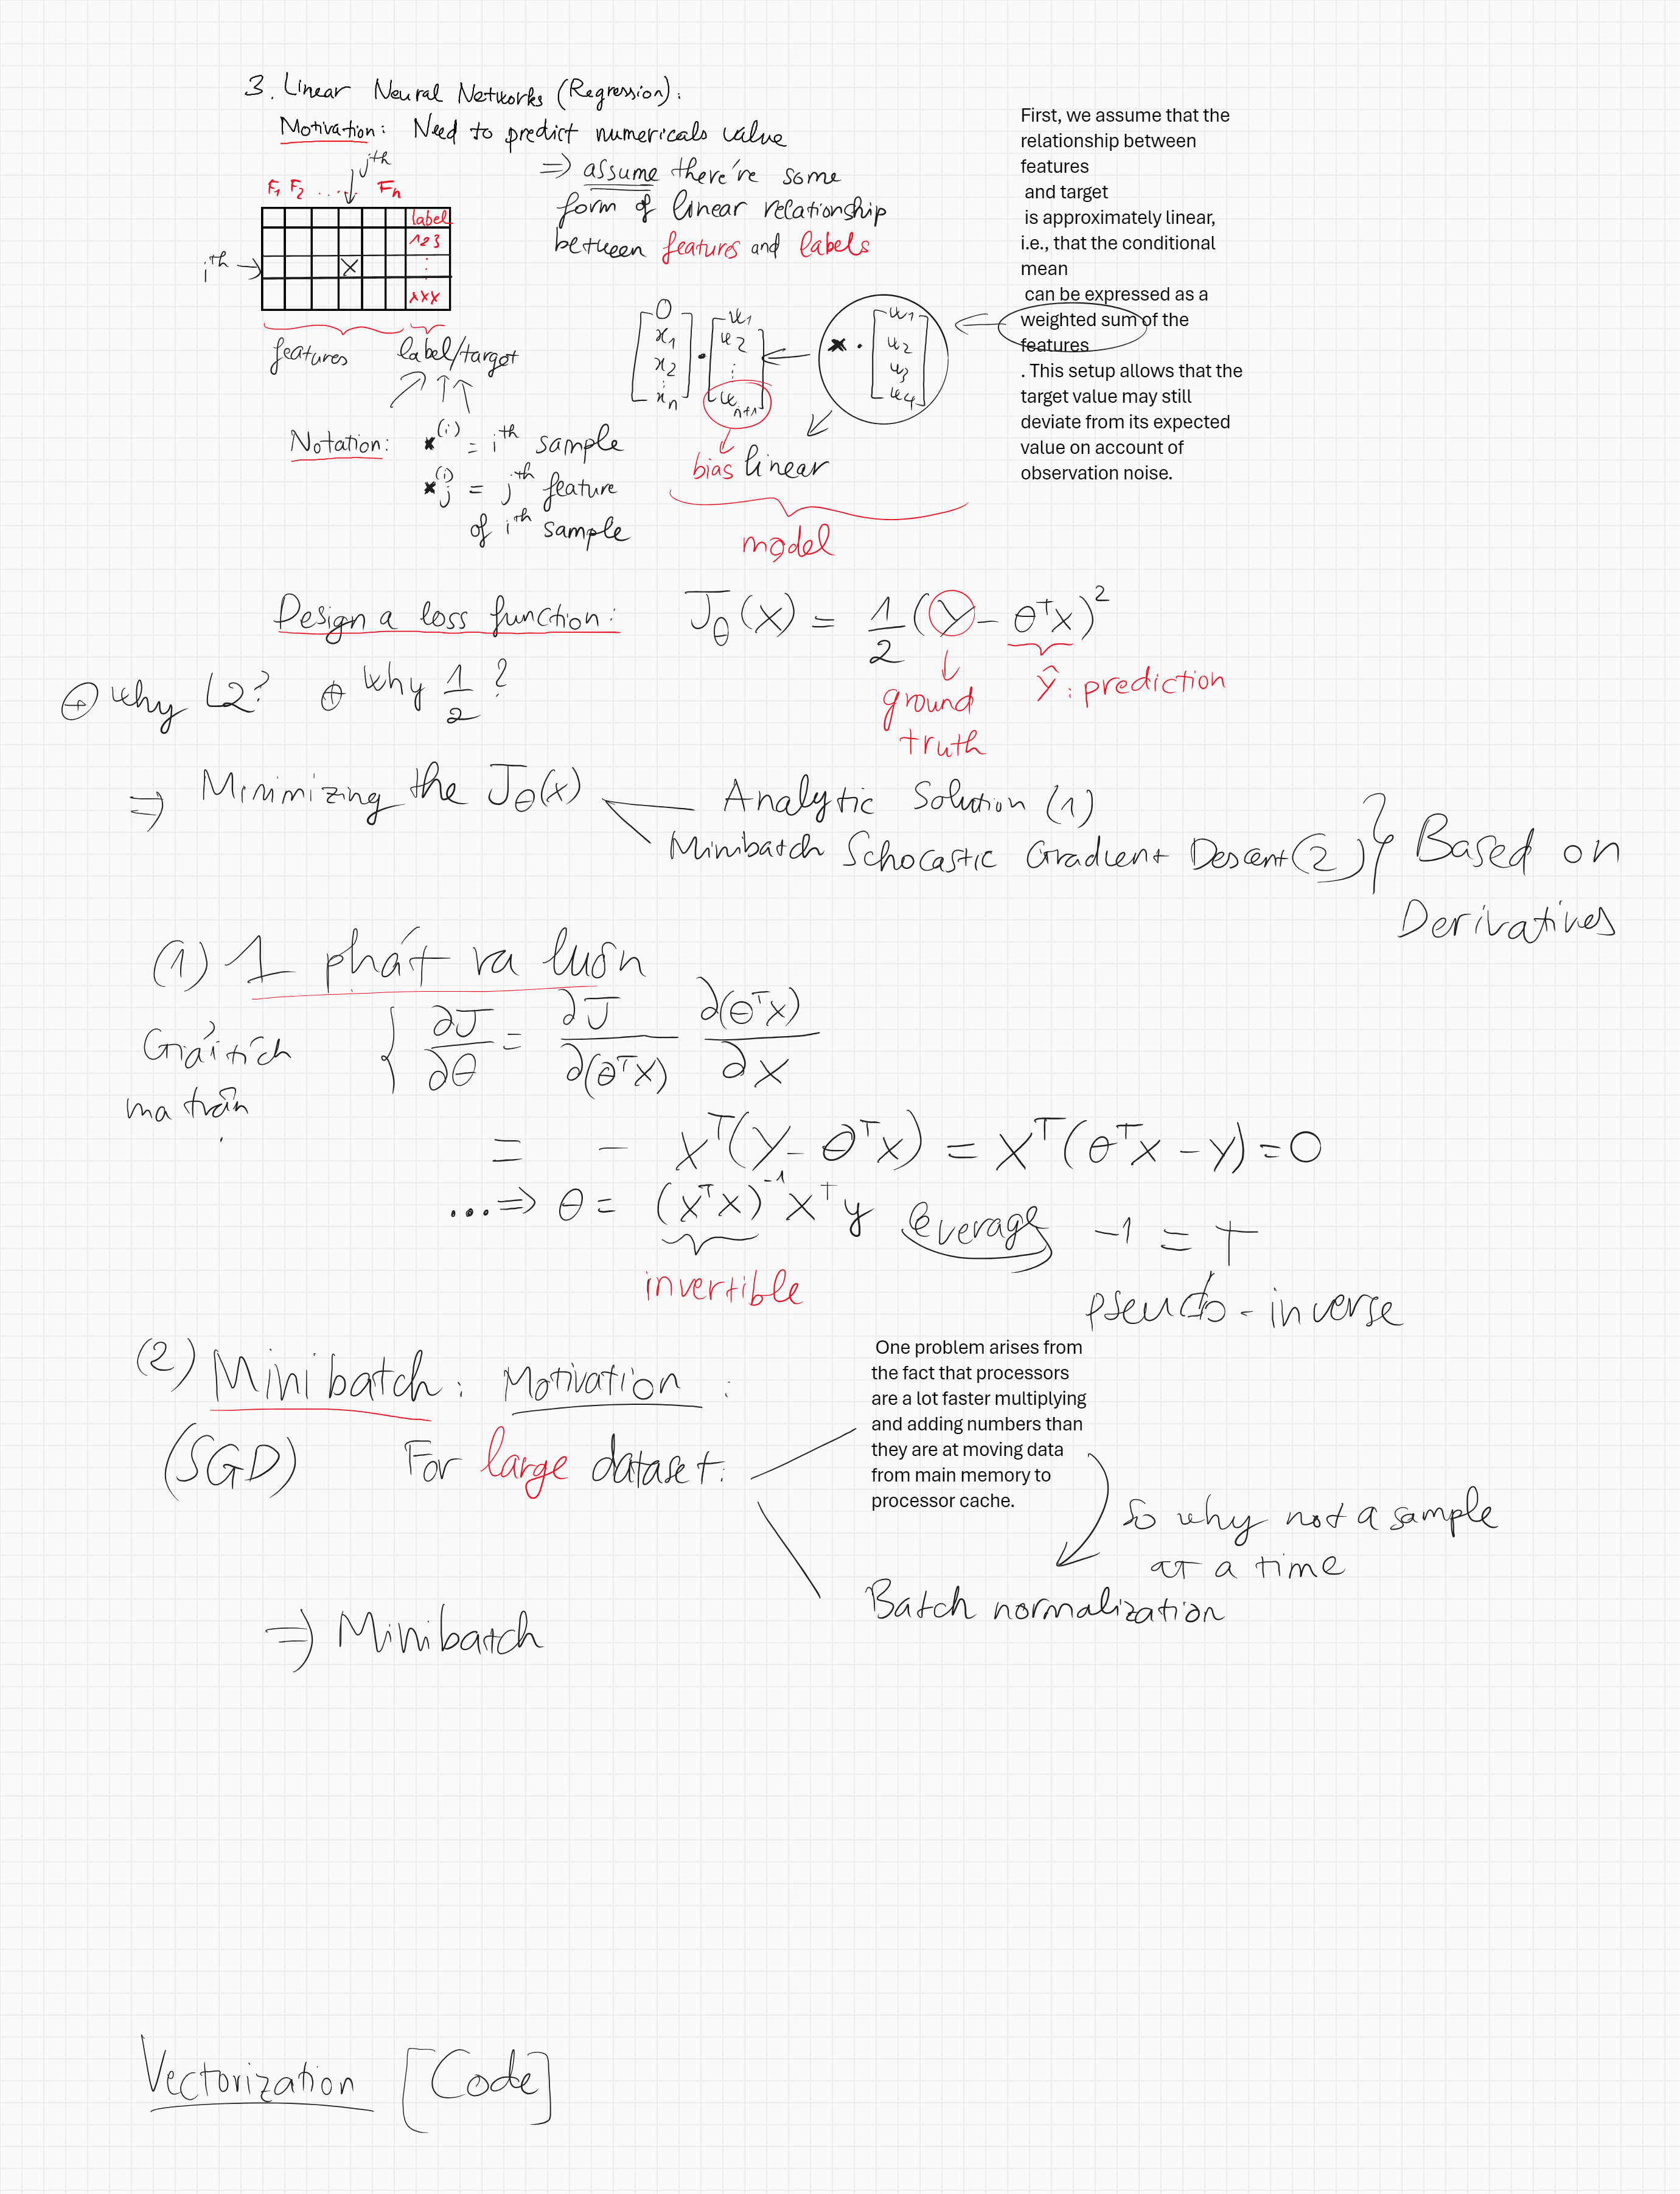 3. Linear Neural Networks (Regression):
Motivation: Need to predict numericals value
=> assume there're some
form of linear relationship
between features and labels
jth
F1 F2 .... Fn
label
123
ith → X :
xxx
features label/target
Notation: x(i) = ith sample
xj(i) = jth feature
of ith sample
[0 x1 x2 : xn] · [w1 w2 : wn+1] ← x · [w1 w2 w3 w4]
bias linear
model
First, we assume that the
relationship between
features
and target
is approximately linear,
i.e., that the conditional
mean
can be expressed as a
weighted sum of the
features
. This setup allows that the
target value may still
deviate from its expected
value on account of
observation noise.
Design a loss function: Jθ(x) = 1/2 (y - θᵀx)²
ground
truth
ŷ: prediction
⊕ why L2? ⊕ why 1/2 ?
=> Minimizing the Jθ(x) Analytic Solution (1)
Minibatch Schocastic Gradient Descent (2) } Based on
Derivatives
(1) 1 phát ra luôn
Giải tích
ma trận
{ ∂J/∂θ = ∂J/∂(θᵀx) ∂(θᵀx)/∂x
= - xᵀ(y - θᵀx) = xᵀ(θᵀx - y) = 0
...=> θ = (xᵀx)⁻¹ xᵀy leverage -1 = †
invertible
pseudo-inverse
(2) Minibatch: Motivation :
(SGD) For large dataset:
One problem arises from
the fact that processors
are a lot faster multiplying
and adding numbers than
they are at moving data
from main memory to
processor cache.
So why not a sample
at a time
Batch normalization
=> Minibatch
Vectorization [Code]